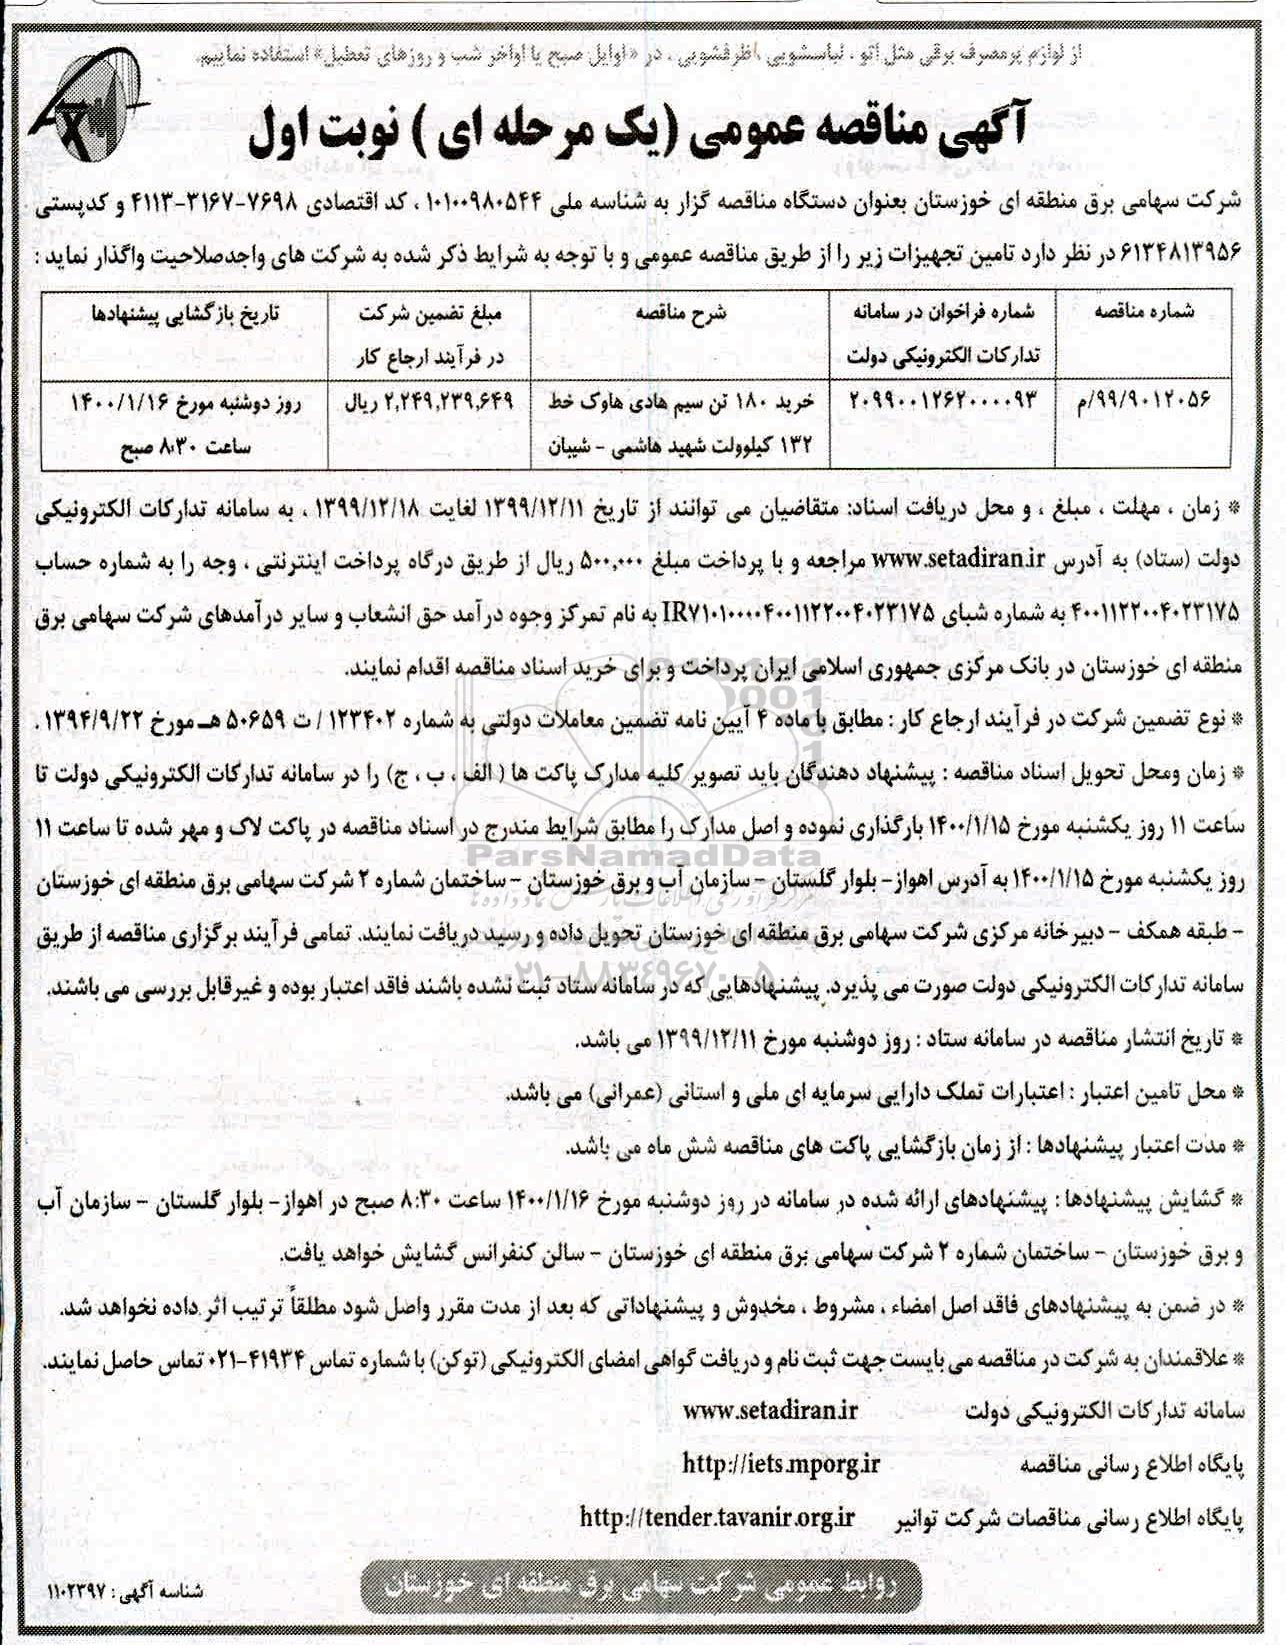 از لوازم پرمصرف برقی مثل اتو ، لباسشویی ، ظرفشویی ، در «اوایل صبح یا اواخر شب و روزهای تعطیل» استفاده نماییم.
آگهی مناقصه عمومی (یک مرحله ای ) نوبت اول
شرکت سهامی برق منطقه ای خوزستان بعنوان دستگاه مناقصه گزار به شناسه ملی ۱۰۱۰۰۹۸۰۵۴۴ ، کد اقتصادی ۷۶۹۸-۳۱۶۷-۴۱۱۳ و کدپستی
۶۱۳۴۸۱۳۹۵۶ در نظر دارد تامین تجهیزات زیر را از طریق مناقصه عمومی و با توجه به شرایط ذکر شده به شرکت های واجدصلاحیت واگذار نماید :
شماره مناقصه
شماره فراخوان در سامانه
تدارکات الکترونیکی دولت
شرح مناقصه
مبلغ تضمین شرکت
در فرآیند ارجاع کار
تاریخ بازگشایی پیشنهادها
۹۹/۹۰۱۲۰۵۶/م
۲۰۹۹۰۰۱۲۶۲۰۰۰۰۹۳
خرید ۱۸۰ تن سیم هادی هاوک خط
۱۳۲ کیلوولت شهید هاشمی - شیبان
۲,۲۴۹,۲۳۹,۶۴۹ ریال
روز دوشنبه مورخ ۱۴۰۰/۱/۱۶
ساعت ۸:۳۰ صبح
* زمان ، مهلت ، مبلغ ، و محل دریافت اسناد: متقاضیان می توانند از تاریخ ۱۳۹۹/۱۲/۱۱ لغایت ۱۳۹۹/۱۲/۱۸ ، به سامانه تدارکات الکترونیکی
دولت (ستاد) به آدرس www.setadiran.ir مراجعه و با پرداخت مبلغ ۵۰۰,۰۰۰ ریال از طریق درگاه پرداخت اینترنتی ، وجه را به شماره حساب
۴۰۰۱۱۲۲۰۰۴۰۲۳۱۷۵ به شماره شبای IR۷۱۰۱۰۰۰۰۴۰۰۱۱۲۲۰۰۴۰۲۳۱۷۵ به نام تمرکز وجوه درآمد حق انشعاب و سایر درآمدهای شرکت سهامی برق
منطقه ای خوزستان در بانک مرکزی جمهوری اسلامی ایران پرداخت و برای خرید اسناد مناقصه اقدام نمایند.
* نوع تضمین شرکت در فرآیند ارجاع کار : مطابق با ماده ۴ آیین نامه تضمین معاملات دولتی به شماره ۱۲۳۴۰۲ / ت ۵۰۶۵۹ هـ مورخ ۱۳۹۴/۹/۲۲ .
* زمان ومحل تحویل اسناد مناقصه : پیشنهاد دهندگان باید تصویر کلیه مدارک پاکت ها ( الف ، ب ، ج) را در سامانه تدارکات الکترونیکی دولت تا
ساعت ۱۱ روز یکشنبه مورخ ۱۴۰۰/۱/۱۵ بارگذاری نموده و اصل مدارک را مطابق شرایط مندرج در اسناد مناقصه در پاکت لاک و مهر شده تا ساعت ۱۱
ParsNamadData
روز یکشنبه مورخ ۱۴۰۰/۱/۱۵ به آدرس اهواز- بلوار گلستان - سازمان آب و برق خوزستان - ساختمان شماره ۲ شرکت سهامی برق منطقه ای خوزستان
- طبقه همکف - دبیرخانه مرکزی شرکت سهامی برق منطقه ای خوزستان تحویل داده و رسید دریافت نمایند. تمامی فرآیند برگزاری مناقصه از طریق
۰۲۱-۸۸۳۴۹۶۷۰-۵
سامانه تدارکات الکترونیکی دولت صورت می پذیرد. پیشنهادهایی که در سامانه ستاد ثبت نشده باشند فاقد اعتبار بوده و غیرقابل بررسی می باشند.
* تاریخ انتشار مناقصه در سامانه ستاد : روز دوشنبه مورخ ۱۳۹۹/۱۲/۱۱ می باشد.
* محل تامین اعتبار : اعتبارات تملک دارایی سرمایه ای ملی و استانی (عمرانی) می باشد.
* مدت اعتبار پیشنهادها : از زمان بازگشایی پاکت های مناقصه شش ماه می باشد.
* گشایش پیشنهادها : پیشنهادهای ارائه شده در سامانه در روز دوشنبه مورخ ۱۴۰۰/۱/۱۶ ساعت ۸:۳۰ صبح در اهواز- بلوار گلستان - سازمان آب
و برق خوزستان - ساختمان شماره ۲ شرکت سهامی برق منطقه ای خوزستان - سالن کنفرانس گشایش خواهد یافت.
* در ضمن به پیشنهادهای فاقد اصل امضاء ، مشروط ، مخدوش و پیشنهاداتی که بعد از مدت مقرر واصل شود مطلقاً ترتیب اثر داده نخواهد شد.
* علاقمندان به شرکت در مناقصه می بایست جهت ثبت نام و دریافت گواهی امضای الکترونیکی (توکن) با شماره تماس ۴۱۹۳۴-۰۲۱ تماس حاصل نمایند.
سامانه تدارکات الکترونیکی دولت www.setadiran.ir
پایگاه اطلاع رسانی مناقصه http://iets.mporg.ir
پایگاه اطلاع رسانی مناقصات شرکت توانیر http://tender.tavanir.org.ir
روابط عمومی شرکت سهامی برق منطقه ای خوزستان
شناسه آگهی : ۱۱۰۲۳۹۷